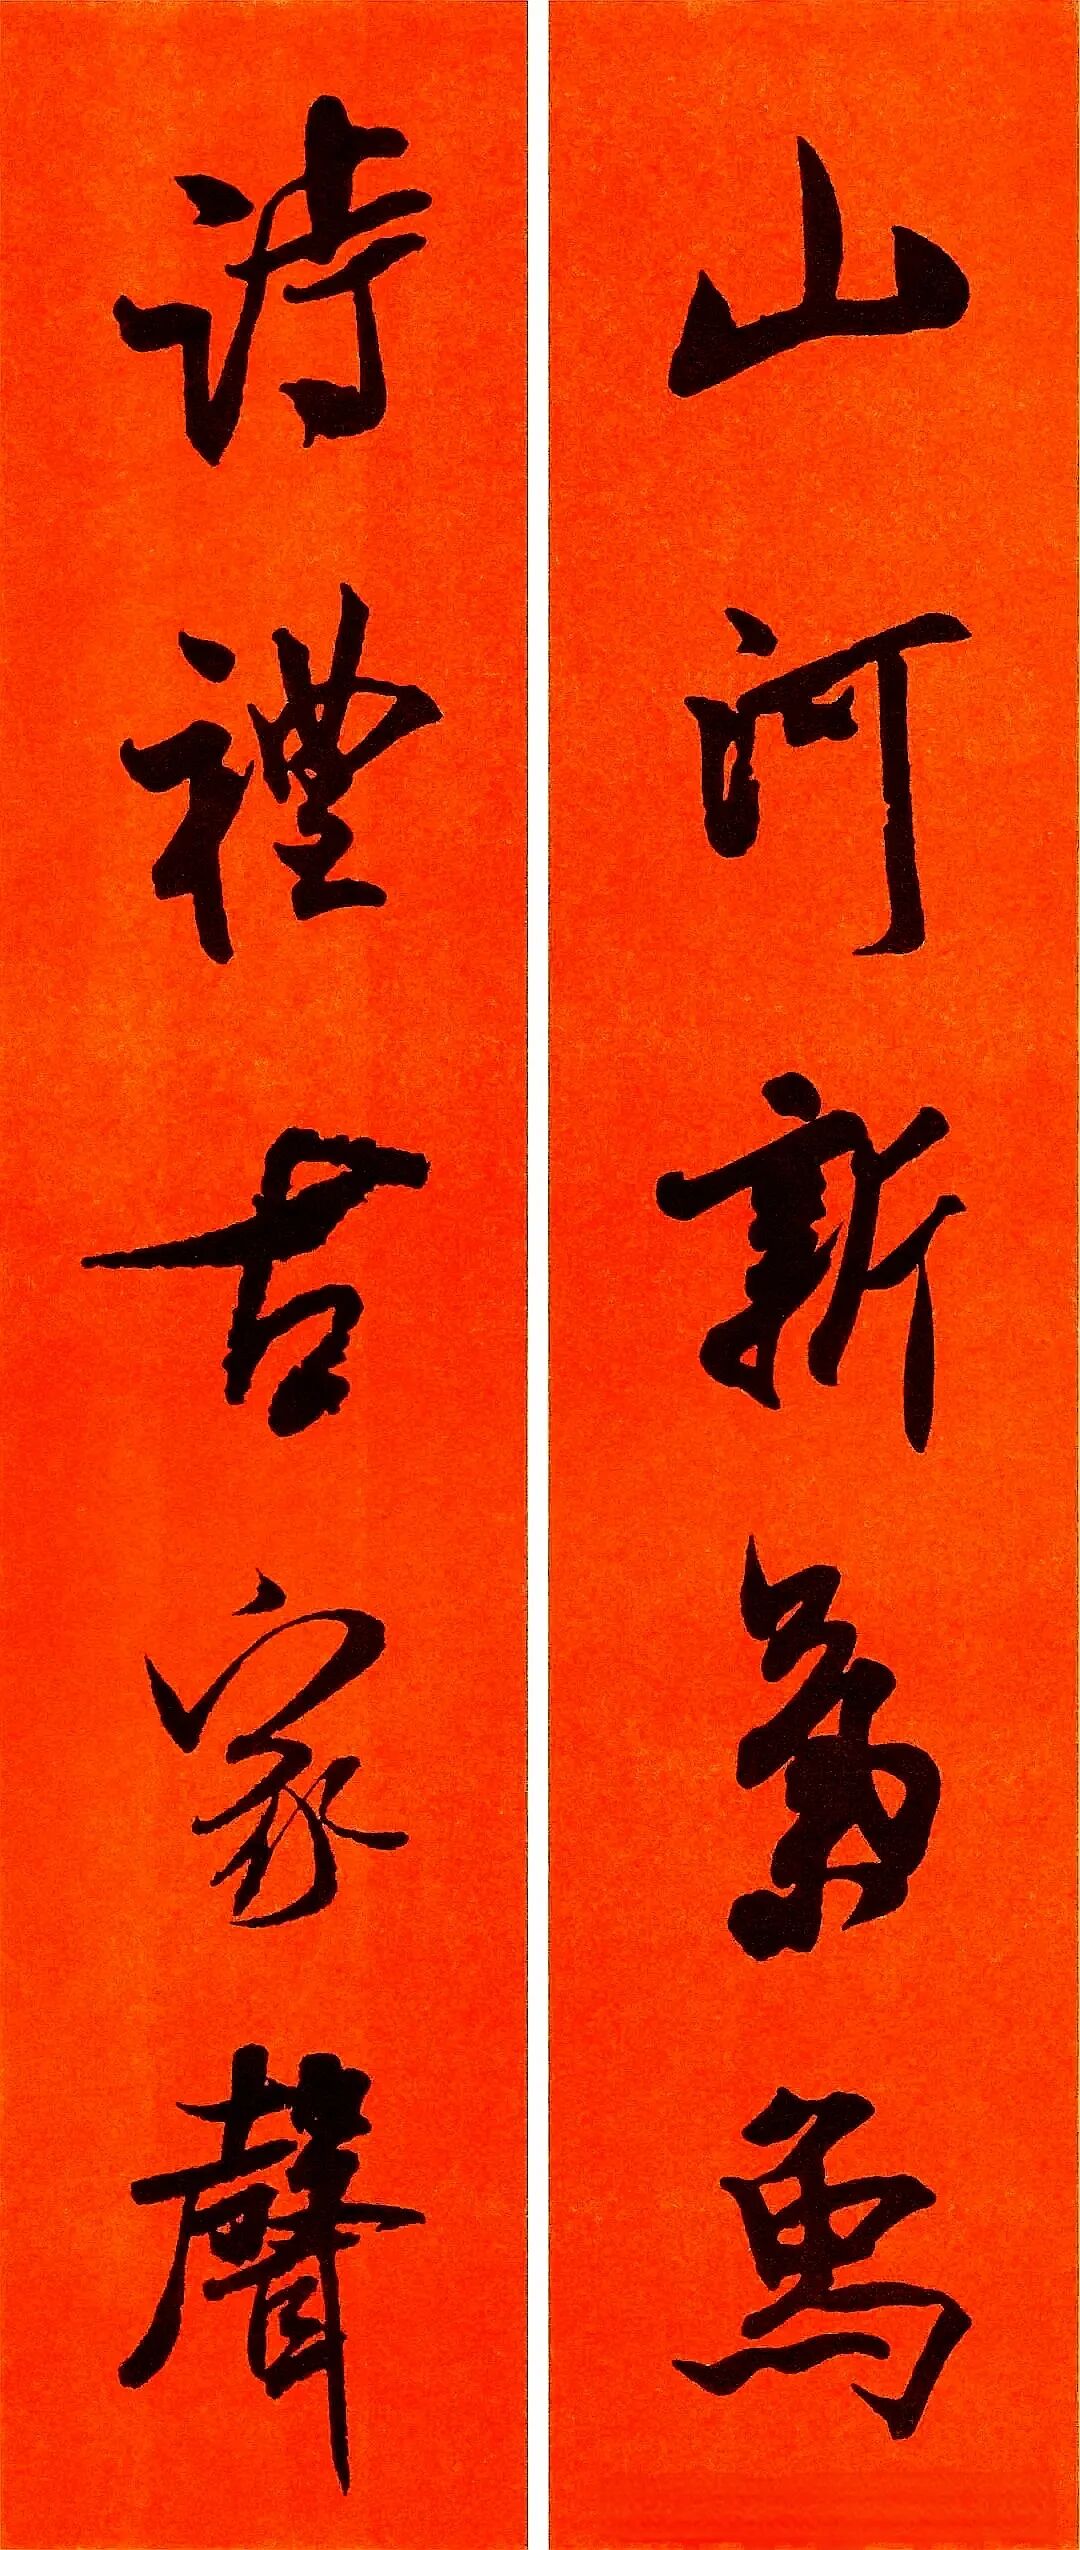 山河新氣象
詩禮古家聲